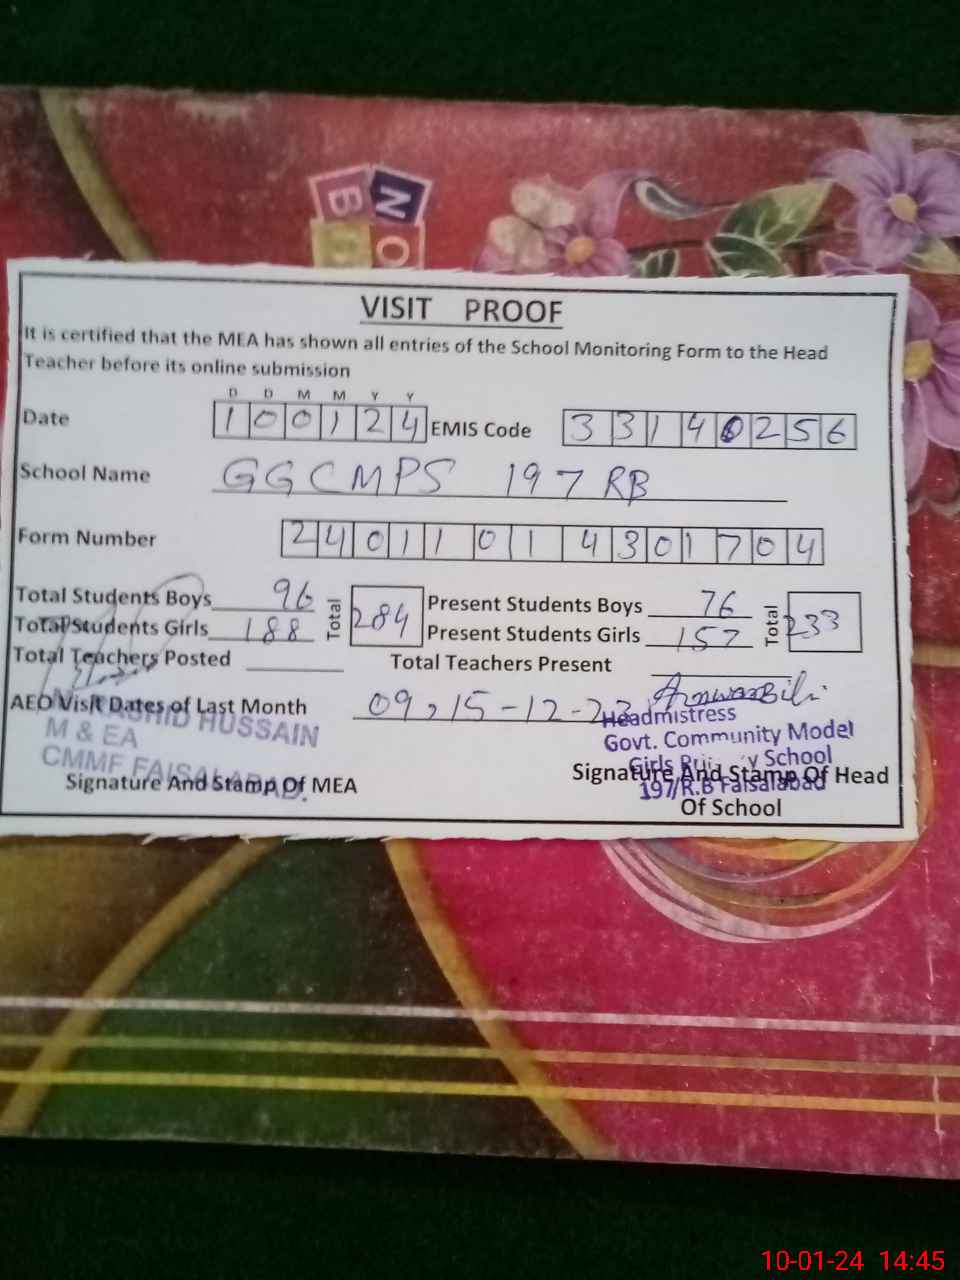 N
B
O
VISIT PROOF
It is certified that the MEA has shown all entries of the School Monitoring Form to the Head
Teacher before its online submission
D D M M Y Y
Date 100124 EMIS Code 33140256
School Name GGCMPS 197 RB
Form Number 24011014301704
Total Students Boys 96 Total 284 Present Students Boys 76 Total 233
Total Students Girls 188 Present Students Girls 157
Total Teachers Posted Total Teachers Present
AEO Visit Dates of Last Month 09, 15-12-23
RASHID HUSSAIN
M & EA
CMMF FAISALABAD.
Signature And Stamp Of MEA
Headmistress
Govt. Community Model
Girls School
197/R.B Faisalabad
Signature And Stamp Of Head
Of School
10-01-24 14:45